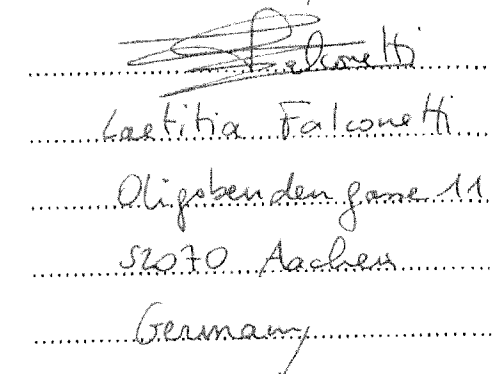 Falconetti
Laetitia Falconetti
Oligsbendengasse 11
52070 Aachen
Germany